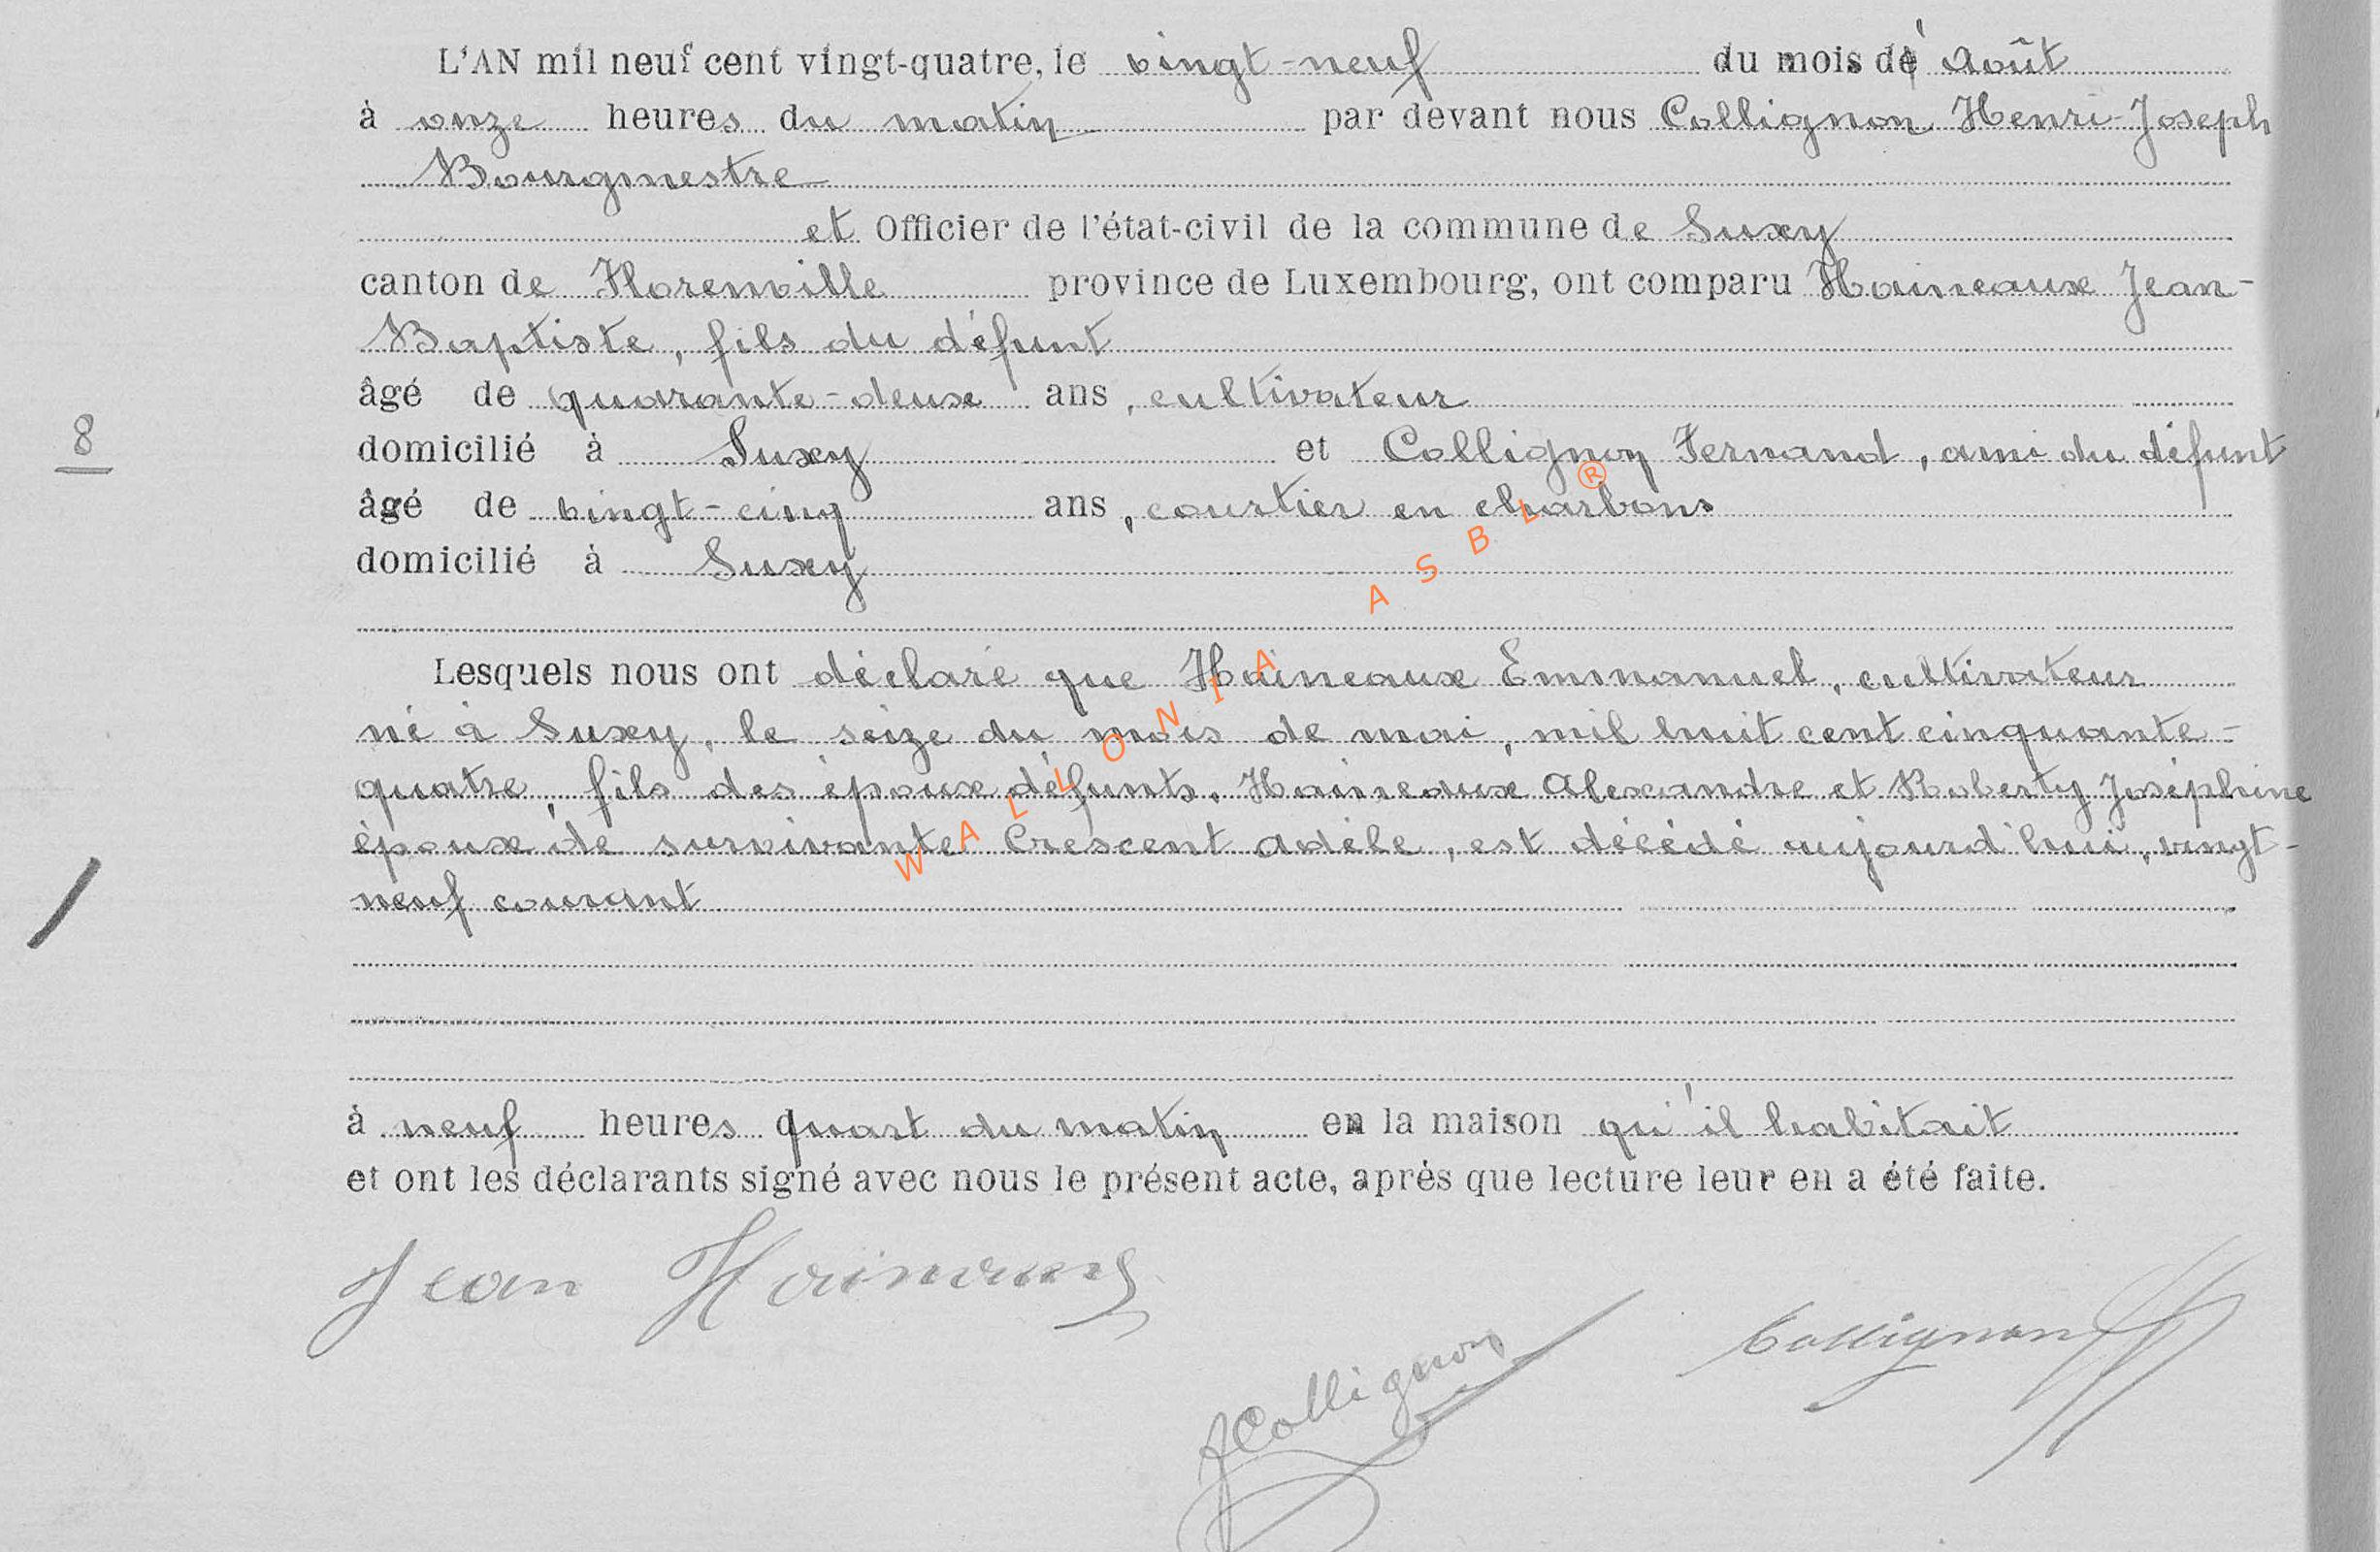 L'AN mil neuf cent vingt-quatre, le vingt-neuf du mois d'Août
à onze heures du matin par devant nous Collignon Henri-Joseph
Bourgmestre
et Officier de l'état-civil de la commune de Suxy
canton de Florenville province de Luxembourg, ont comparu Haineaux Jean-
Baptiste, fils du défunt
âgé de quarante-deux ans, cultivateur
8
domicilié à Suxy et Collignon Fernand, ami du défunt
âgé de vingt-cinq ans, courtier en charbons
domicilié à Suxy
Lesquels nous ont déclaré que Haineaux Emmanuel, cultivateur
né à Suxy, le seize du mois de mai, mil huit cent cinquante-
quatre, fils des époux défunts, Haineaux Alexandre et Roberty Joséphine
époux de survivante Crescent Adèle, est décédé aujourd'hui, vingt-
neuf courant
WALLONIA ASBL ®
à neuf heures quart du matin en la maison qu'il habitait
et ont les déclarants signé avec nous le présent acte, après que lecture leur en a été faite.
Jean Haineaux
FCollignon
Collignon